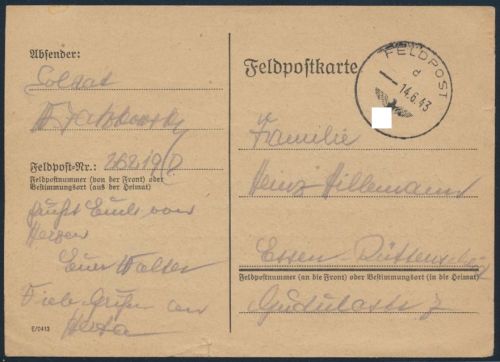 Absender:
Soldat
Feldpost-Nr.: 26219
Feldpostnummer (von der Front) oder
Bestimmungsort (aus der Heimat)
Euch von
Herzen
Euer Walter
Viele Grüße an
Herta
E/0413
Feldpostkarte
FELDPOST
d
14.6.43
Familie
Heinz Hillemann
Essen
Feldpostnummer (an die Front) oder Bestimmungsort (in die Heimat)
Gudulastr 7